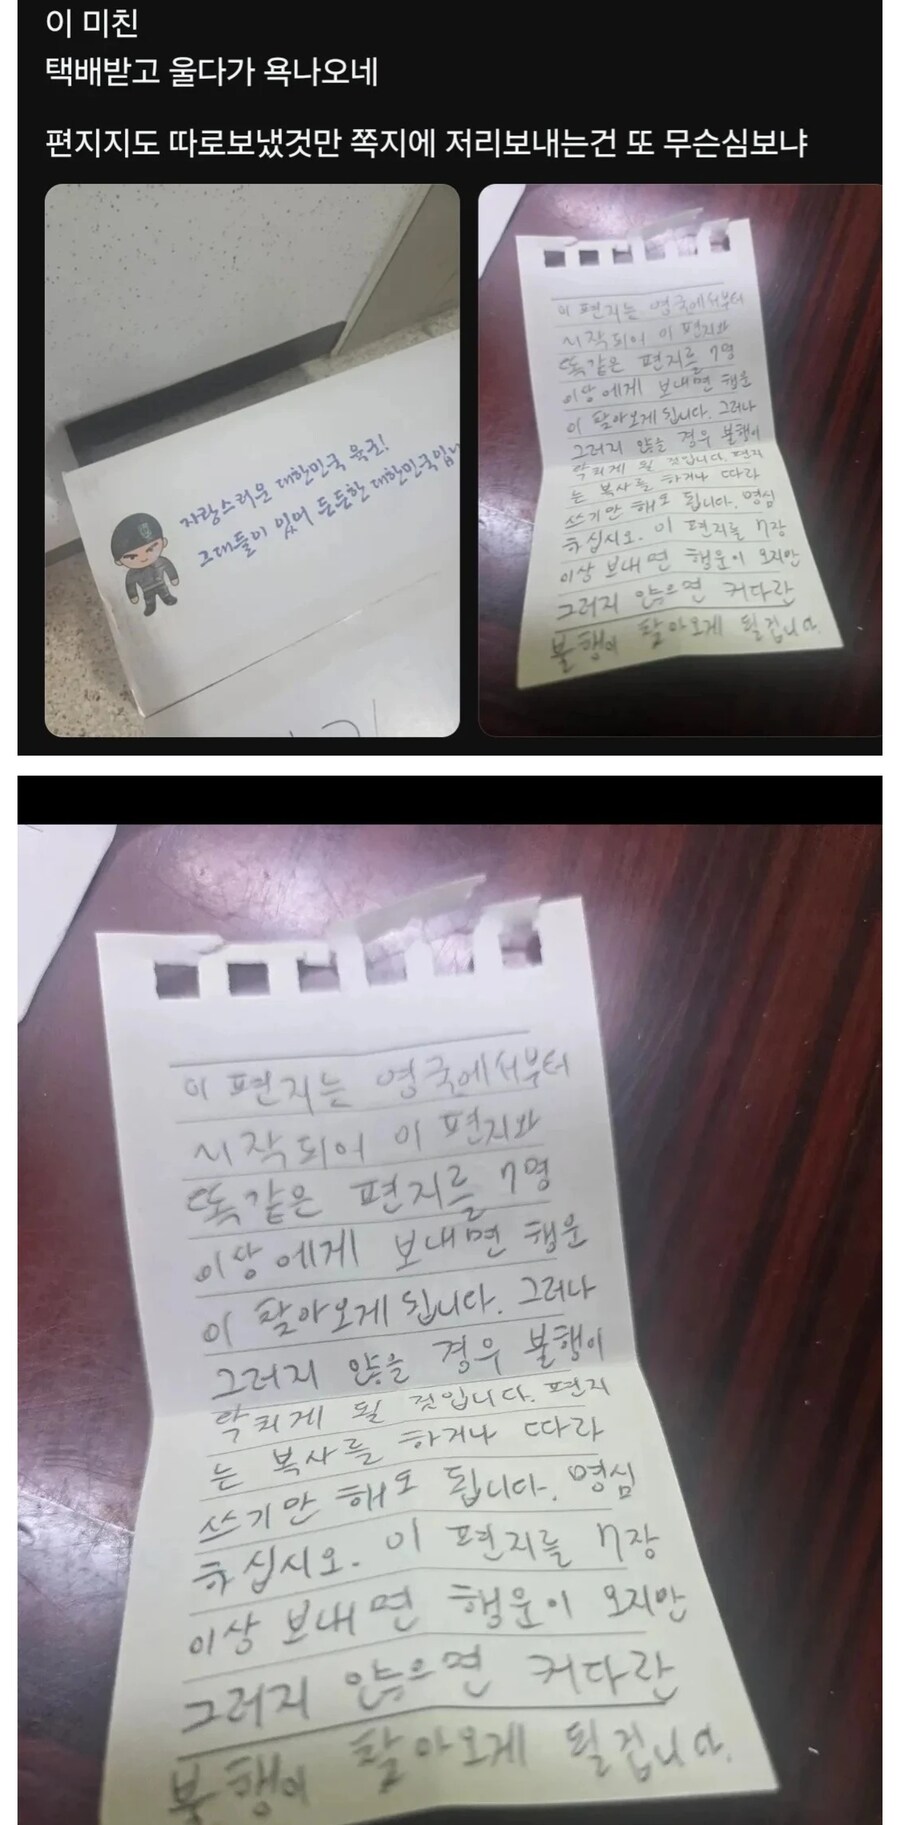 이 미친
택배받고 울다가 욕나오네
편지지도 따로보냈것만 쪽지에 저리보내는건 또 무슨심보냐
자랑스러운 대한민국 육군!
그대들이 있어 든든한 대한민국입니
이 편지는 영국에서부터
시작되어 이 편지와
똑같은 편지를 7명
이상에게 보내면 행운
이 찾아오게 됩니다. 그러나
그러지 않을 경우 불행이
닥치게 될 것입니다. 편지
는 복사를 하거나 따라
쓰기만 해도 됩니다. 명심
하십시오. 이 편지를 7장
이상 보내면 행운이 오지만
그러지 않으면 커다란
불행이 찾아오게 될겁니다.
이 편지는 영국에서부터
시작되어 이 편지와
똑같은 편지를 7명
이상에게 보내면 행운
이 찾아오게 됩니다. 그러나
그러지 않을 경우 불행이
닥치게 될 것입니다. 편지
는 복사를 하거나 따라
쓰기만 해도 됩니다. 명심
하십시오. 이 편지를 7장
이상 보내면 행운이 오지만
그러지 않으면 커다란
불행이 찾아오게 될겁니다.